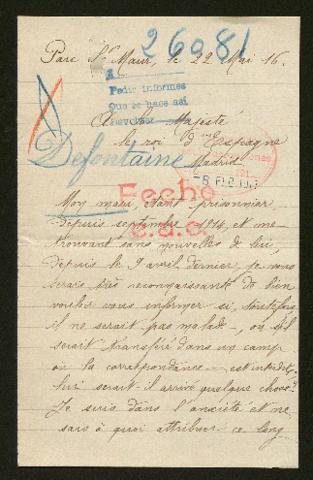 26081
Parc St Maur, le 22 Mai 16.
Pedir informes
Que se hace así
A Sa Majesté
le roi d'Espagne
Madrid
Defontaine
Fecho
Mon mari, étant prisonnier
depuis septembre 1914, et me
trouvant sans nouvelles de lui,
depuis le 9 avril dernier, je vous
serais très reconnaissante de bien
vouloir vous informer si, toutefois
il ne serait pas malade, ou s'il
serait transféré dans un camp
où la correspondance est interdite
lui serait il arrivé quelque chose?
Je suis dans l'anxiété et ne
sais à quoi attribuer ce long